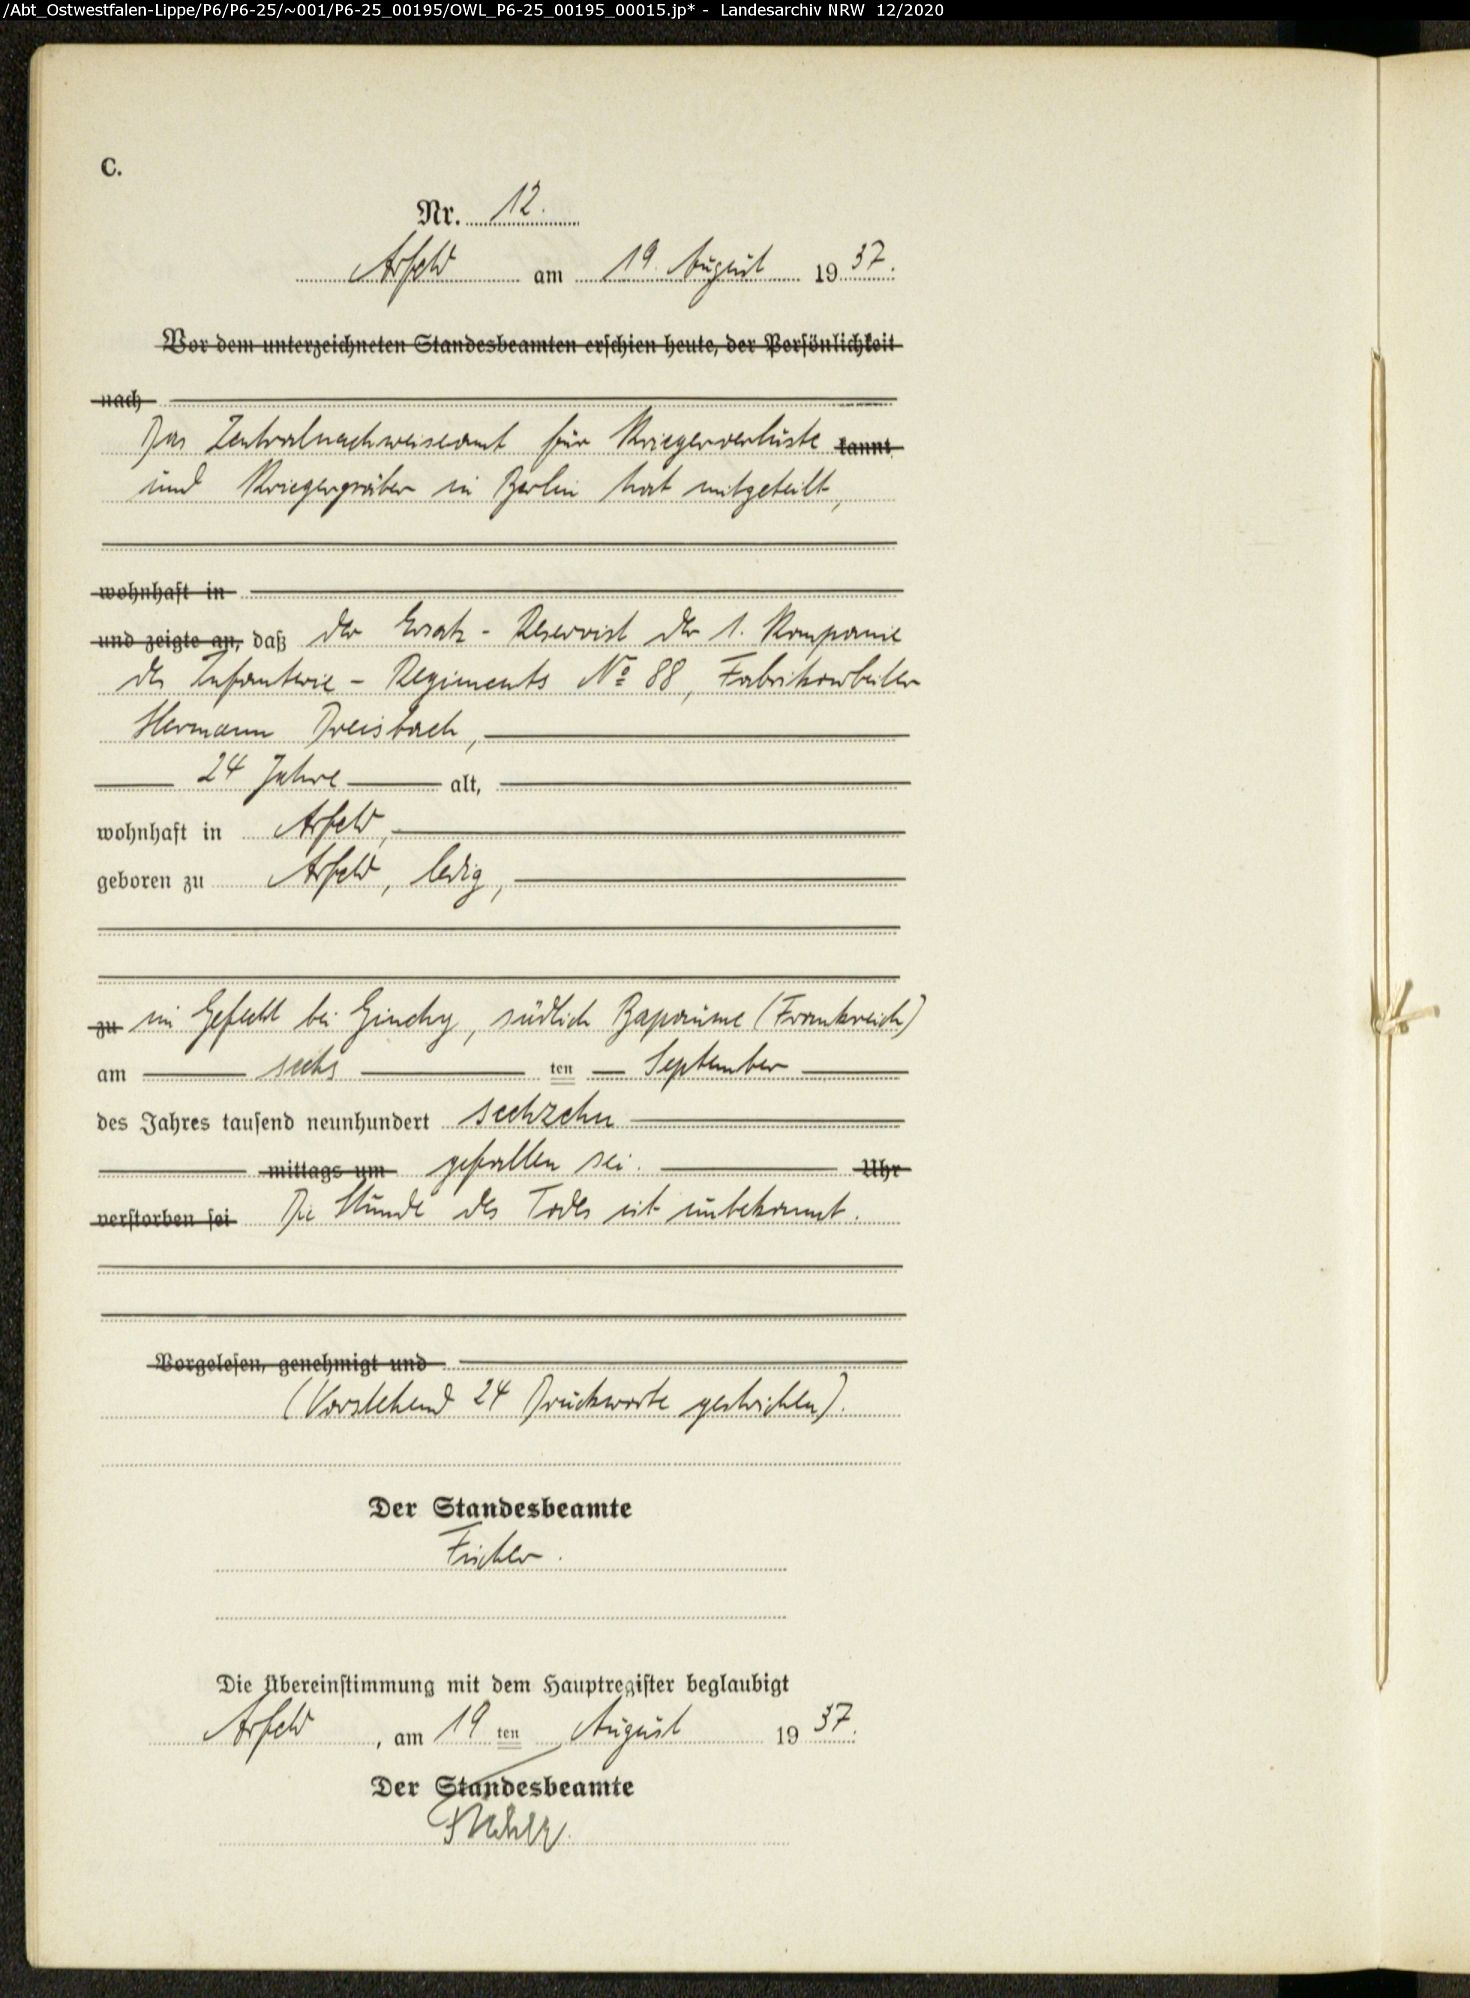 /Abt_Ostwestfalen-Lippe/P6/P6-25/~001/P6-25_00195/OWL_P6-25_00195_00015.jp* - Landesarchiv NRW 12/2020
C.
Nr. 12.
Arfeld am 19. August 1937.
Vor dem unterzeichneten Standesbeamten erschien heute, der Persönlichkeit
nach
Das Zentralnachweiseamt für Kriegerverluste kannt
und Kriegergräber in Berlin hat mitgeteilt,
wohnhaft in
und zeigte an, daß der Ersatz-Reservist der 1. Kompanie
des Infanterie-Regiments No 88, Fabrikarbeiter
Hermann Dreisbach,
24 Jahre alt,
wohnhaft in Arfeld,
geboren zu Arfeld, ledig,
zu im Gefecht bei Ginchy, südlich Bapaume (Frankreich)
am sechs ten September
des Jahres tausend neunhundert sechzehn
mittags um gefallen sei. Uhr
verstorben sei Die Stunde des Todes ist unbekannt.
Vorgelesen, genehmigt und
(Vorstehend 24 Druckworte gestrichen).
Der Standesbeamte
Fischer.
Die Übereinstimmung mit dem Hauptregister beglaubigt
Arfeld, am 19 ten August 1937.
Der Standesbeamte